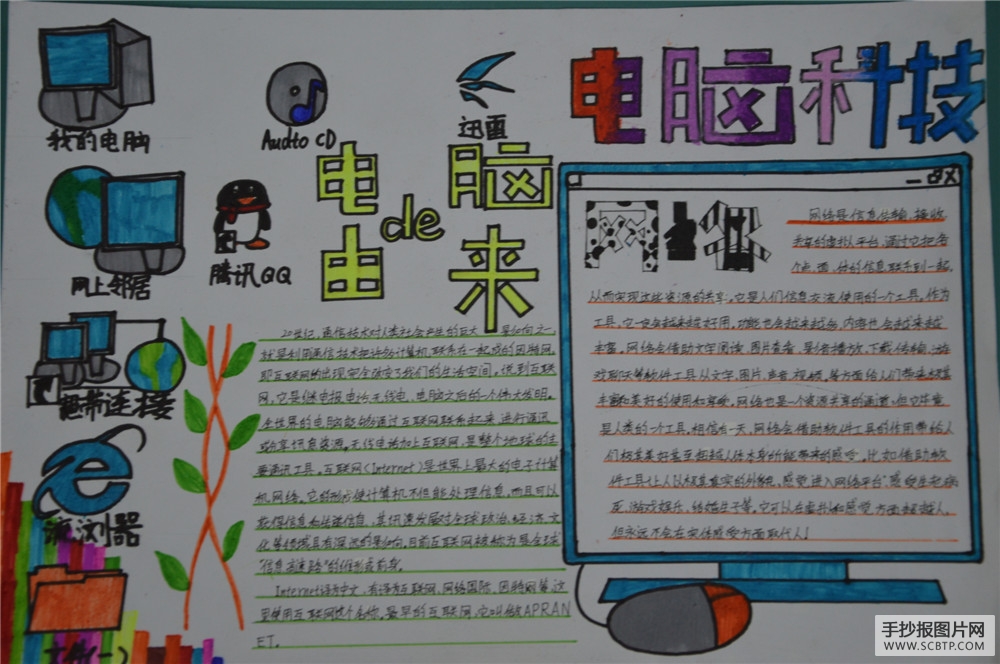 我的电脑
Audto CD
迅雷
电脑科技
网上邻居
腾讯QQ
电脑
de
由来
宽带连接
浏览器
文件(一)
网络
网络是信息传输、接收、
共享的虚拟平台,通过它把各
个点、面、体的信息联系到一起,
从而实现这些资源的共享,它是人们信息交流、使用的一个工具。作为
工具,它一定会越来越好用。功能也会越来越多,内容也会越来越
丰富。网络会借助文字阅读、图片查看、影音播放、下载传输、游
戏、聊天等软件工具从文字、图片、声音、视频等方面给人们带来极其
丰富和美好的使用和享受。网络也是一个资源共享的通道,但它毕竟
是人类的一个工具,相信有一天,网络会借助软件工具的作用带给人
们极其美好甚至超越人体本身所能带来的感受。比如借助软
件工具让人以极其真实的外貌、感觉进入网络平台,感受生老病
死、游戏娱乐、结婚生子等,它可以在意识和感觉方面超越人,
但永远不会在实体感觉方面取代人!
20世纪,通信技术对人类社会产生的巨大影响之一,
就是利用通信技术把许多计算机联系在一起形成的因特网,
即互联网的出现完全改变了我们的生活空间。说到互联
网,它是继电报、电话、无线电、电脑之后的一个伟大发明。
全世界的电脑能够通过互联网联系起来,进行通讯
或分享讯息资源。无线电波加上互联网,是整个地球的主
要通讯工具。互联网(Internet)是世界上最大的电子计算
机网络,它的形成使计算机不但能处理信息,而且可以
获得信息和传递信息,其迅速发展对全球政治、经济、文
化等领域具有深远的影响,目前互联网被称为是全球
"信息高速路"的雏形或前身。
Internet译为中文,有译为互联网、网络国际、因特网等,这
里使用互联网这个名称。最早的互联网,它叫做APRAN
ET。
手抄报图片网
WWW.SCBTP.COM